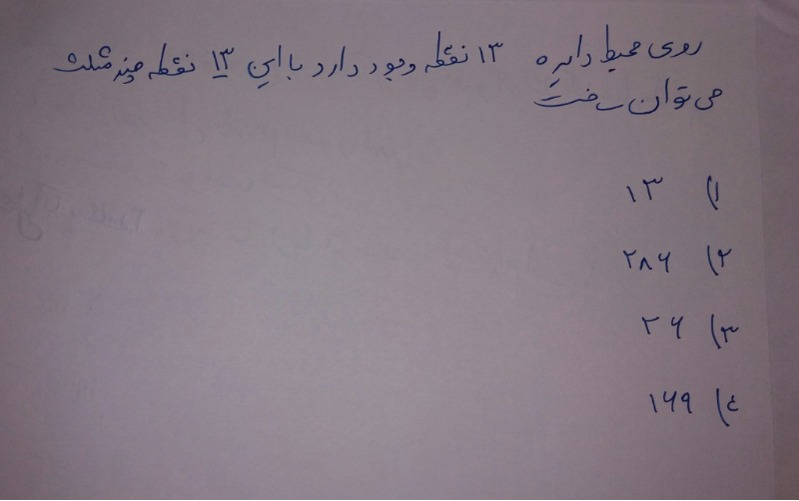 روی محیط دایره ۱۳ نقطه وجود دارد با این ۱۳ نقطه چند مثلث
می توان ساخت
۱) ۱۳
۲) ۲۸۶
۳) ۲۶
۴) ۱۶۹